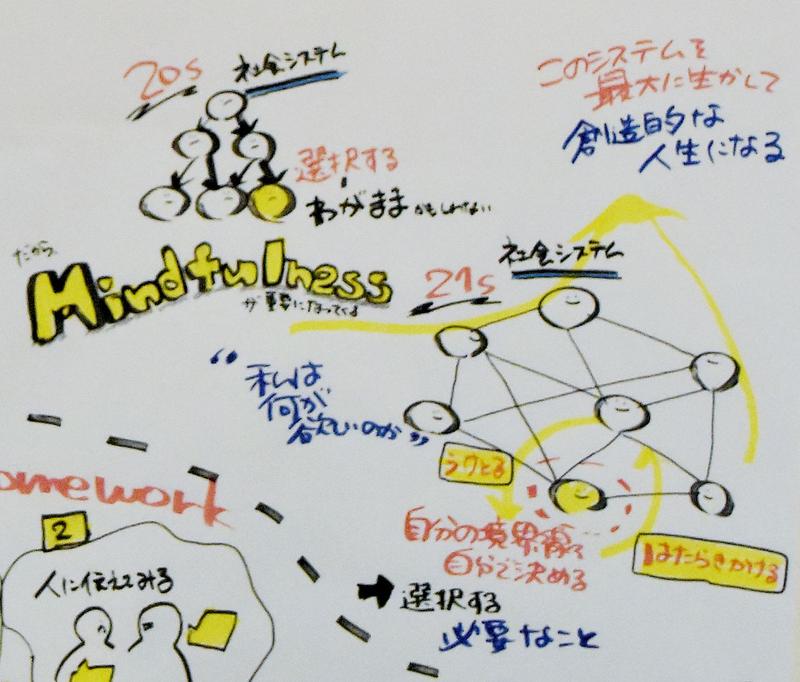 20s 社会システム
選択する
わがままかもしれない
だから
Mindfulness
が重要になってくる
このシステムを
最大に生かして
創造的な
人生になる
21s 社会システム
“私は
何が
欲しいのか”
うけとる
自分の境界線を
自分で決める
はたらきかける
選択する
必要なこと
omework
2
人に伝えてみる